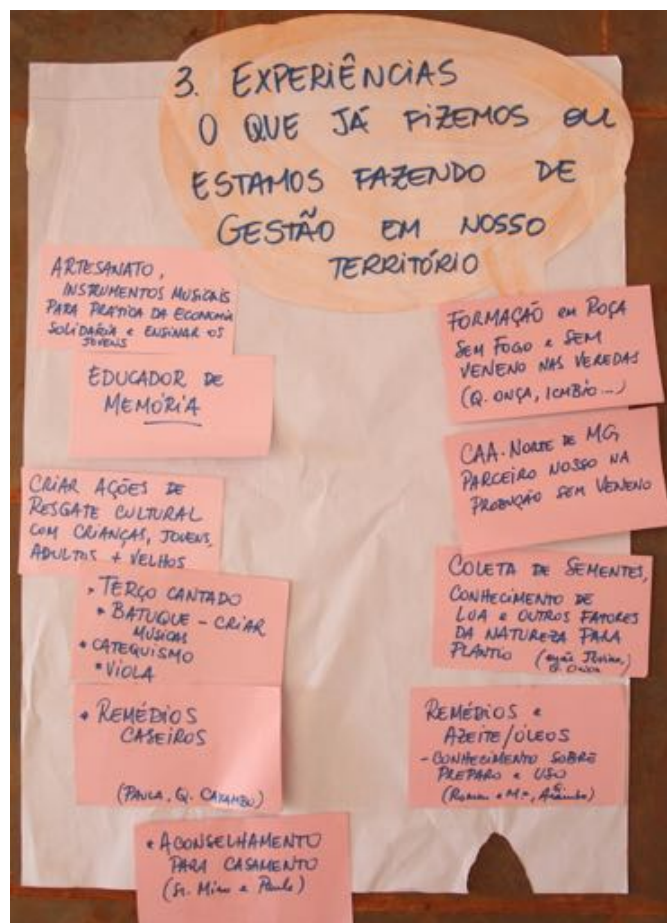 3. EXPERIÊNCIAS
O QUE JÁ FIZEMOS OU
ESTAMOS FAZENDO DE
GESTÃO EM NOSSO
TERRITÓRIO
ARTESANATO,
INSTRUMENTOS MUSICAIS
PARA PRÁTICA DA ECONOMIA
SOLIDÁRIA e ENSINAR OS
JOVENS
EDUCADOR DE
MEMÓRIA
CRIAR AÇÕES DE
RESGATE CULTURAL
COM CRIANÇAS, JOVENS,
ADULTOS + VELHOS
• TERÇO CANTADO
• BATUQUE - CRIAR
MÚSICAS
• CATEQUISMO
• VIOLA
• REMÉDIOS
CASEIROS
(PAULA, Q. CAXAMBU)
• ACONSELHAMENTO
PARA CASAMENTO
(Sr. e Paula)
FORMAÇÃO em ROÇA
SEM FOGO e SEM
VENENO NAS VEREDAS
(Q. ONÇA, ICMBio...)
CAA-NORTE DE MG
PARCEIRO NOSSO NA
SEM VENENO
COLETA DE SEMENTES,
CONHECIMENTO DE
LUA e OUTROS FATORES
DA NATUREZA PARA
PLANTIO
REMÉDIOS e
AZEITE/ÓLEOS
- CONHECIMENTO SOBRE
PREPARO e USO